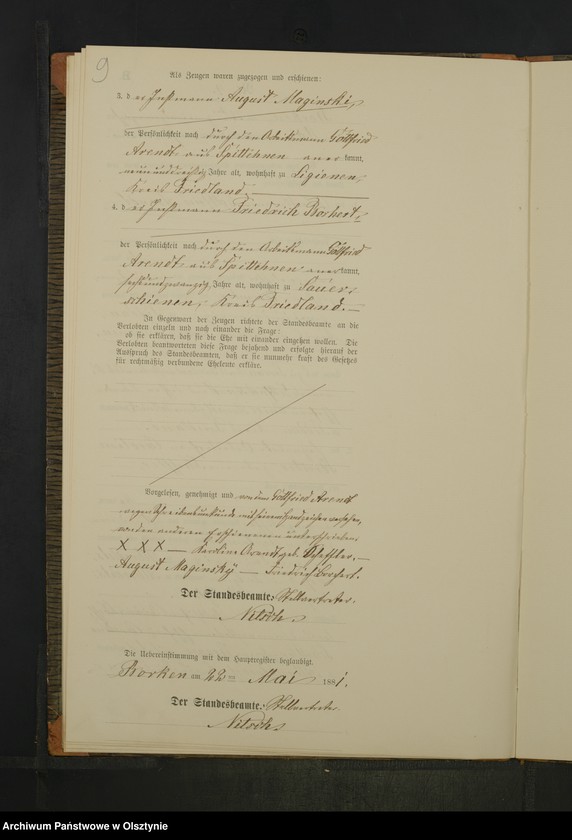 9
Als Zeugen waren zugezogen und erschienen:
3. der Instmann August Maginski,
der Persönlichkeit nach durch den Arbeitsmann Gottfried
Arendt aus Spittehnen anerkannt,
neununddreißig Jahre alt, wohnhaft zu Ligienen,
Kreis Friedland.
4. der Instmann Friedrich Borchert,
der Persönlichkeit nach durch den Arbeitsmann Gottfried
Arendt aus Spittehnen anerkannt,
sechsundzwanzig Jahre alt, wohnhaft zu Sauer-
schienen, Kreis Friedland.
In Gegenwart der Zeugen richtete der Standesbeamte an die
Verlobten einzeln und nach einander die Frage:
ob sie erklären, daß sie die Ehe mit einander eingehen wollen. Die
Verlobten beantworteten diese Frage bejahend und erfolgte hierauf der
Ausspruch des Standesbeamten, daß er sie nunmehr kraft des Gesetzes
für rechtmäßig verbundene Eheleute erkläre.
Vorgelesen, genehmigt und von dem Gottfried Arendt
wegen Schreibensunkunde mit seinem Handzeichen versehen,
von den anderen Erschienenen unterschrieben
X X X — Karoline Arendt geb.
August Maginsky — Friedrich Borchert.
Der Standesbeamte: Stellvertreter.
Nitsch.
Die Uebereinstimmung mit dem Hauptregister beglaubigt.
Borken am 22ten Mai 1881.
Der Standesbeamte. Stellvertreter.
Nitsch
Archiwum Państwowe w Olsztynie